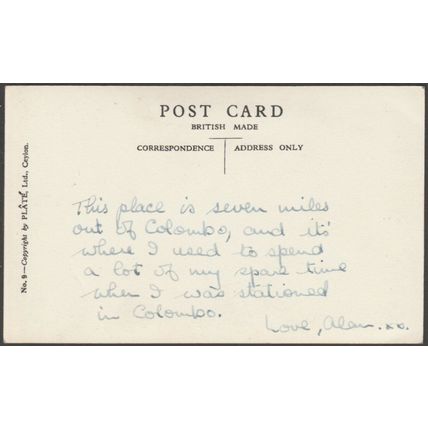 POST CARD
BRITISH MADE
CORRESPONDENCE ADDRESS ONLY
No. 9—Copyright by PLATÉ, Ltd., Ceylon.
This place is seven miles
out of Colombo, and it's
where I used to spend
a lot of my spare time
when I was stationed
in Colombo.
Love, Alan. xx.